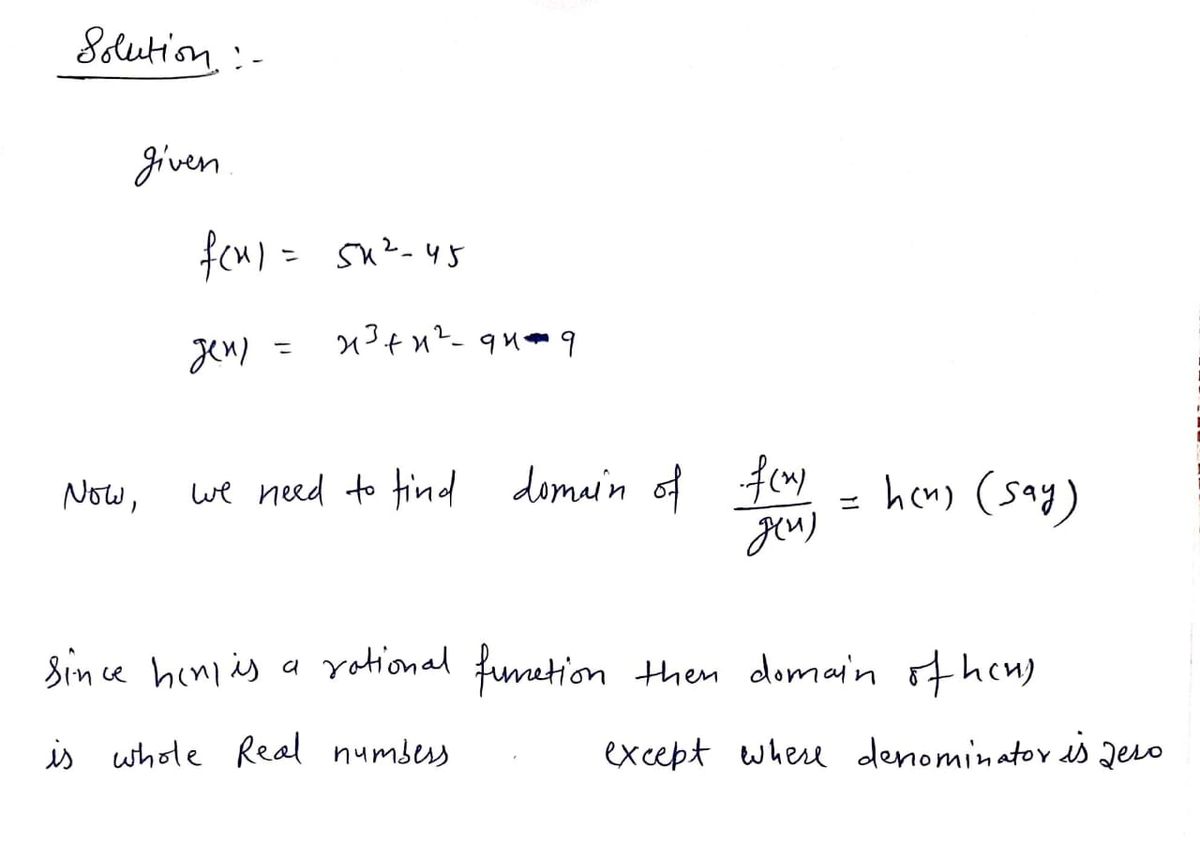 Solution :-
given
f(x) = 5x² - 45
g(x) = x³ + x² - 9x - 9
Now, we need to find domain of f(x)/g(x) = h(x) (say)
Since h(x) is a rational function then domain of h(x)
is whole Real numbers except where denominator is zero